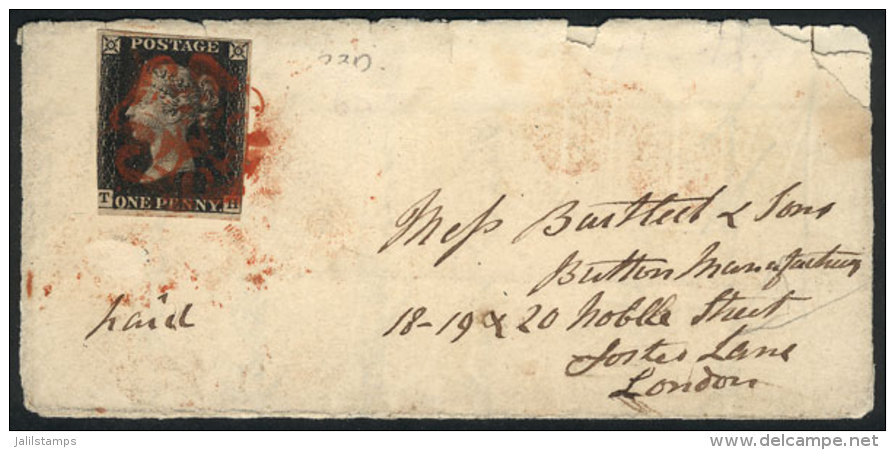 POSTAGE
T H
ONE PENNY.
Mess Bartleet & Sons
Button Manufacturers
paid
18-19 & 20 Noblle Street
Foster Lane
London
jalilstamps
www.delcampe.net